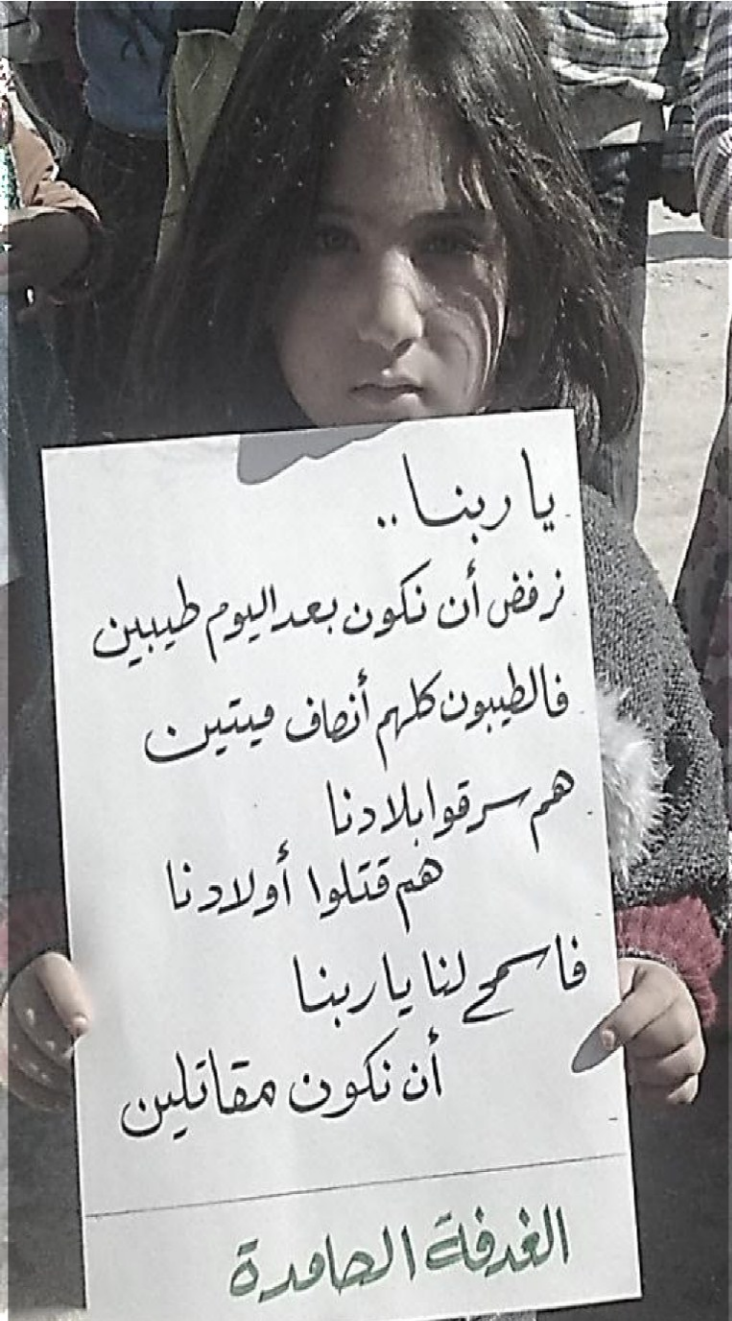 يا ربنا ..
نرفض أن نكون بعد اليوم طيبين
فالطيبون كلهم أنصاف ميتين
هم سرقوا بلادنا
هم قتلوا أولادنا
فاسمح لنا يا ربنا
أن نكون مقاتلين
الغدفة الصامدة